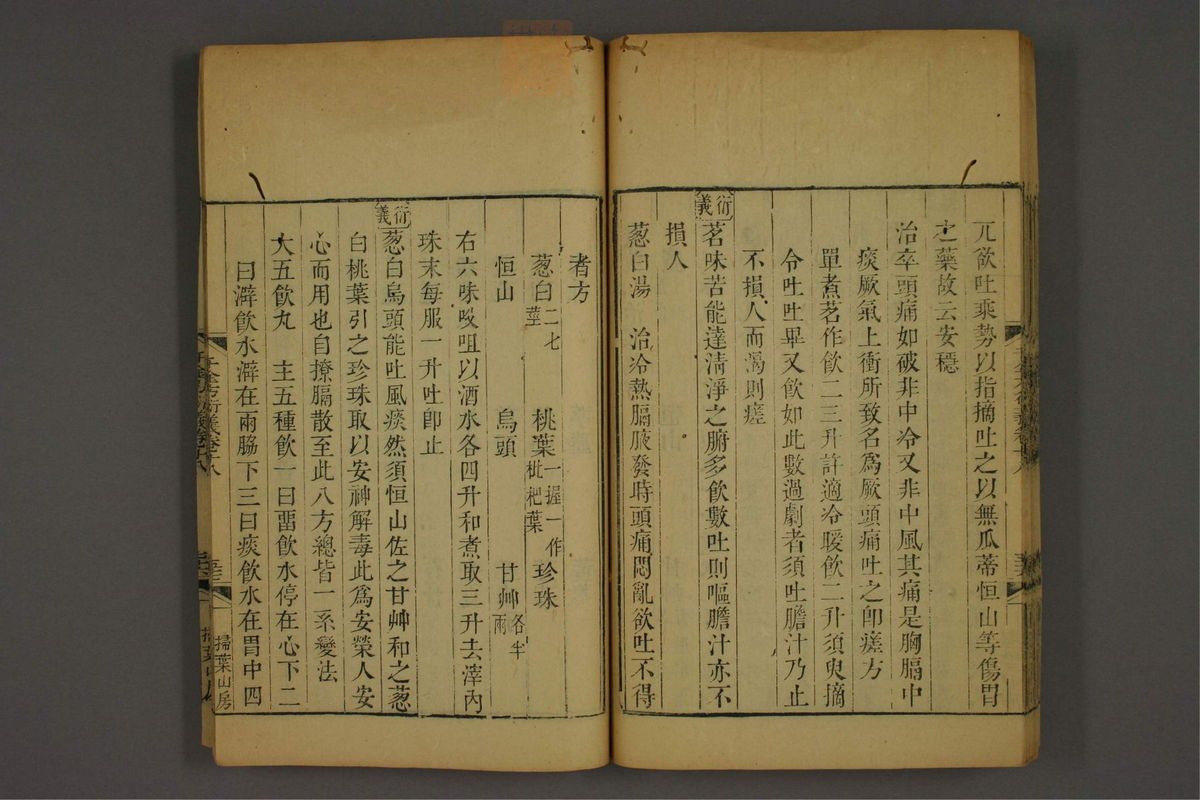 兀欲吐乘勢以指摘吐之以無瓜蒂恒山等傷胃
之藥故云安穩
治卒頭痛如破非中冷又非中風其痛是胸膈中
痰厥氣上衝所致名爲厥頭痛吐之卽瘥方
單煮茗作飲二三升許適冷暖飲二升須臾摘
令吐吐畢又飲如此數過劇者須吐膽汁乃止
不損人而渴則瘥
衍義
茗味苦能達淸淨之腑多飲數吐則嘔膽汁亦不
損人
葱白湯 治冷熱膈痰發時頭痛悶亂欲吐不得
者方
葱白二七莖 桃葉一握一作枇杷葉 珍珠
恒山 烏頭 甘艸各半兩
右六味㕮咀以酒水各四升和煮取三升去滓內
珠末每服一升吐卽止
衍義
葱白烏頭能吐風痰然須恒山佐之甘艸和之葱
白桃葉引之珍珠取以安神解毒此爲安榮人安
心而用也自撩膈散至此八方總皆一系變法
大五飲丸 主五種飲一曰畱飲水停在心下二
曰澼飲水澼在兩脇下三曰痰飲水在胃中四
千金方衍義卷十八
掃葉山房